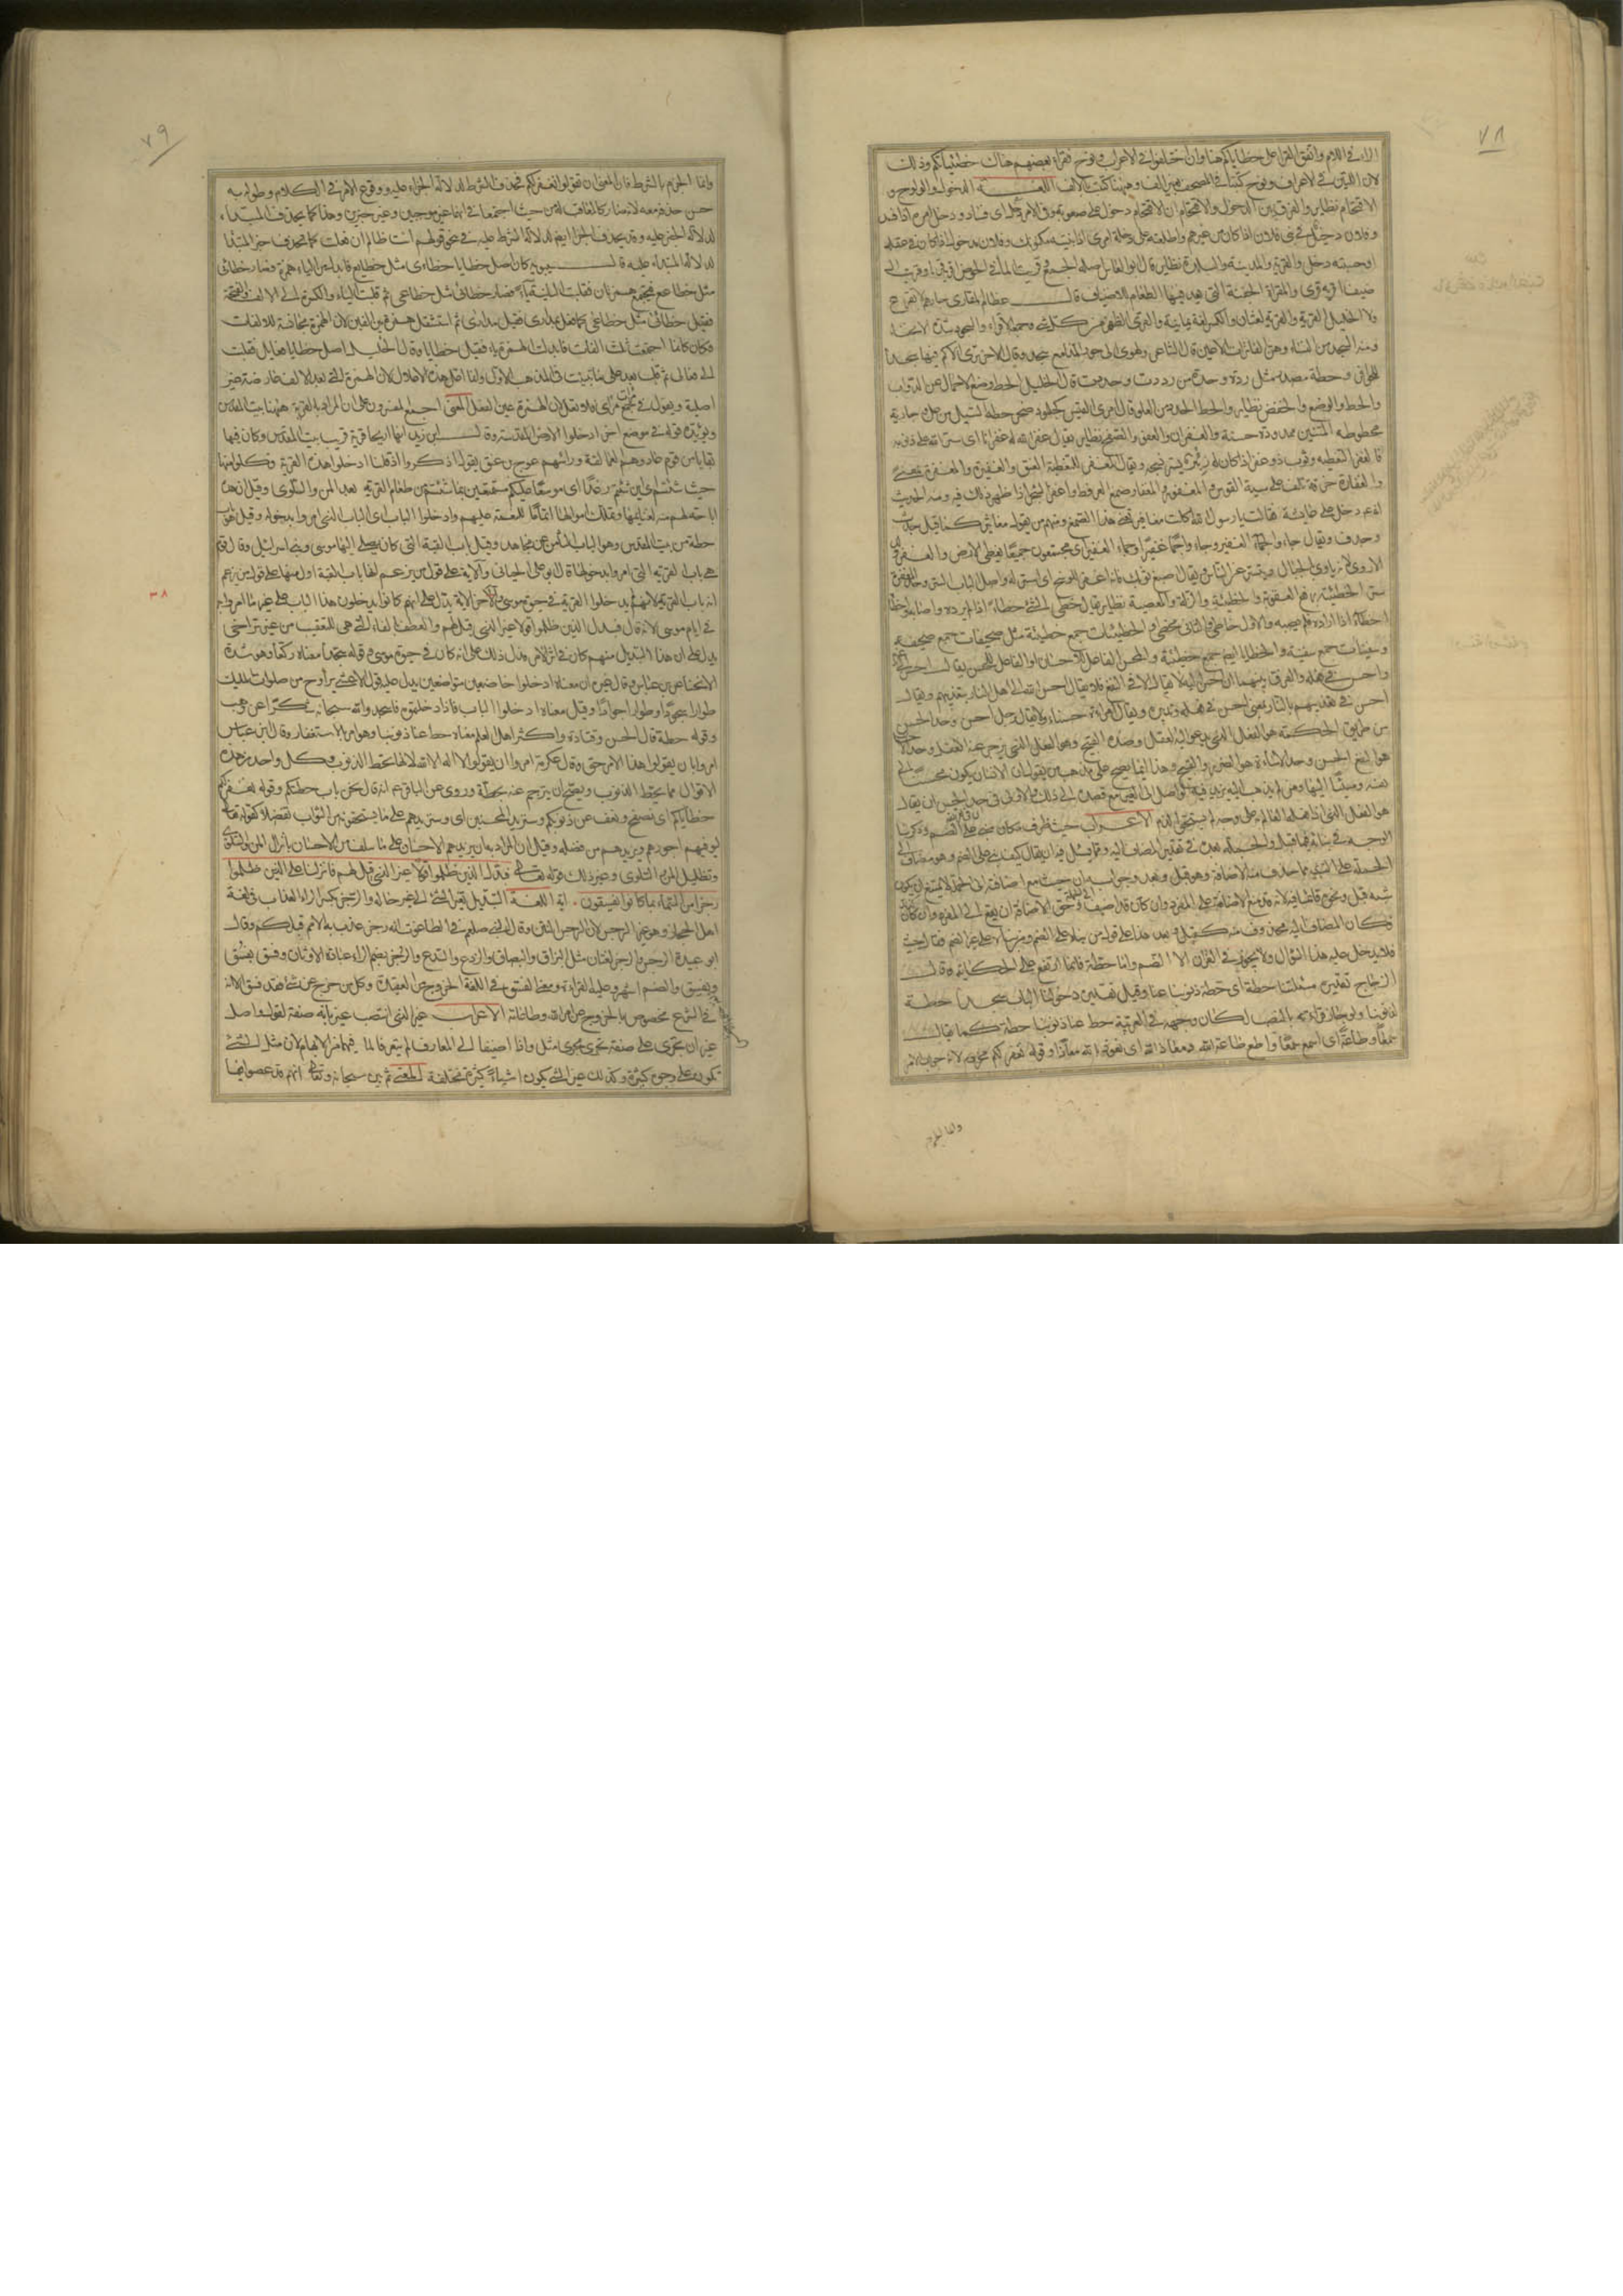 ٧٨
الراء في اللام واتفق القراء على خطاياكم هنا وان اختلفوا في الاعراف ونوح فقراء بعضهم هناك خطيئاتكم وذلك
لان اللتين في الاعراف ونوح كتبتا في المصحف بغير الف وههنا كتبت بالالف اللغـــة الدخول والولوج و
الاقتحام نظاير والفرق بين الدخول والاقتحام ان الاقتحام دخول على صعوبة وفي الامر دخل اى فساد ودخل امره اذا فسد
وفلان دخيل في بني فلان اذا كان من غيرهم واطلعته على دخلة امرى اذا بثثته مكتومك وفلان مدخول اذا كان في عقله
او حسبه دخل والقرية والمدينة والبلدة نظاير قال ابو العباس اصله الجمع و قريت الماء في الحوض
ضيفا اقريه قرى والمقراة الجفنة التى يعد فيها الطعام للاضياف قالـــ عظام المقارى جارهم لا يفزع
قال الخليل القرية والقرية لغتان والكسر لغة يمانية والقرى الظهر من كل شئ وجمعه الاقراء والسجود شدة الانحناء
ومنه السجد من النساء وهن الفاترات الاعين قال الشاعر وقال الاخر ترى الاكم فيها سجدا
للحوافر وحطة مصدر مثل ردة وجدة من رددت وجددت قال الخليل الحط وضع الاحمال عن الدواب
والحط والوضع والخفض نظاير والحط الحدر من العلو قال امرؤ القيس كجلمود صخر حطه السيل من عل وجارية
محطوطة المتنين ممدودة حسنة والغفران والعفو والصفح نظاير يقال غفر الله له غفرانا اى ستر الله على ذنوبه
فالغفر التغطية وثوب ذو غفر اذا كان له زئبر يستر نسجه ويقال المغفر لتغطية العنق والغفيرة والمغفرة بمعنى
والغفارة خرقة تلف على سية القوس والمغفور والمغفار صمغ العرفط واغفر الشجر اذا ظهر ذلك فيه ومنه الحديث
انه ع دخل على عائشة فقالت يا رسول الله اكلت مغافير تعنى هذا الصمغ ومنهم من يقول مغاثير كما قيل جدث
وجدف ويقال جاءوا الجماء الغفير وجاءوا جما غفيرا وجماء الغفير اى مجتمعين جميعا يغطى الارض والغفر ولد
الاروى لانه ياوى الجبال ويستتر عن الناس ويقال اصبغ ثوبك فانه اغفر للوسخ اى استر له واصل الباب الستر وحد المغفرة
ستر الخطيئة برفع العقوبة والخطيئة والزلة والمعصية نظاير يقال خطئ الشئ خطأ اذا لم يرده واصابه
اخطاء اذا اراده فلم يصبه والاول خاطئ والثانى مخطئ والخطيئات جمع خطيئة مثل صحيفات جمع صحيفة
وسفينات جمع سفينة والخطايا ايضا جمع خطيئة والمحسن الفاعل للاحسان او الفاعل للحسن يقال احسن الى غيره
واحسن في فعله والفرق بينهما ان احسن اليه لا يقال الا في النفع فلا يقال احسن الله الى اهل النار بتعذيبهم ويقال
احسن في تعذيبهم بالنار بمعنى احسن في فعله وتدبيره ويقال امراة حسناء ولا يقال رجل احسن وحد الحسن
من طريق الحكمة هو الفعل الذى يدعو اليه العقل وضده القبيح وهو الفعل الذى يزجر عنه العقل وحد الاحسان
هو النفع الحسن وحد الاساءة هو الضرر القبيح وهذا انما يصح على مذهب من يقول ان الانسان يكون محسنا الى
نفسه ومسيئا اليها ومن لم يذهب اليه يزيد فيه الواصل الى الغير مع قصده الى ذلك والاولى في حد الحسن ان يقال
هو الفعل الذى اذا فعله العالم به على وجه لم يستحق الذم الاعـــراب حيث ظرف مكان مبنى على الضم وذكرنا
الوجه في بنائه فيما قبل والجملة بعده في تقدير المضاف اليه ومما يسئل فيه ان يقال كيف بنى على الضم وهو مضاف الى
الجملة على التشبيه بما حذف منه الاضافة وهو قبل وبعد وجوابه ان حيث مع اضافته الى الجملة لا يمتنع ان يكون
شبه قبل وبعد قائما فيه لانه قد منع الاضافة على المفرد وان كان قد اضيف الى الجملة وحق الاضافة ان يقع الى المفرد وان كان
فكان المضاف اليه محذوف منه كقبل وبعد هذا على قوله من بناه على الضم ومن بناه على غير الضم
فلا يدخل عليه هذا السؤال ولا يجوز في القرآن الا الضم واما حطة فانما ارتفع على الحكاية وقالـــ
الزجاج تقديره مسئلتنا حطة اى حطة ذنوبنا عنا وقيل تقديره دخولنا الباب سجدا حطة
لذنوبنا ولو جاز قراءته بالنصب لكان وجهه في العربية حط عنا ذنوبنا حطة كما يقالـــ
سمعا وطاعة اى اسمع سمعا واطيع طاعة الله ومعاذ الله اى نعوذ بالله معاذا وقوله نغفر لكم مجزوم لانه جواب الامر
وانما انجزم
٧٩
وانما انجزم بالشرط فان المعنى ان تقولوا نغفر لكم فحذف الشرط لدلالة الجزاء عليه ووقوع الامر في الكلام وطوله به
حسن حذفه معه لانه صار كالمعاقب له من حيث اجتمعا في انهما غير موجبين وغير خبرين وهذا كما يحذف المبتداء
لدلالة الخبر عليه وقد يحذف الجزاء ايضا لدلالة الشرط عليه في نحو قولهم انت ظالم ان فعلت كما يحذف خبر المبتدا
لدلالة المبتداء عليه قالـــ سيبويه كان اصل خطايا خطاءى مثل خطايع فابدلت من الياء همزة فصار خطائى
مثل خطاعع فتجتمع همزتان فقلبت الثانية ياء فصار خطائى مثل خطاعى ثم قلبت الياء والكسرة الى الالف والفتحة
فقيل خطاءا مثل خطاعا كما فعل بمدارى فقيل مدارا ثم استثقل همزة بين الفين لان الهمزة مجانسة للالفات
وكان كانما اجتمعت ثلث الفات فابدلت الهمزة ياء فقيل خطايا وقال الخليل اصل خطايا فعايل فقلبت
الى فعالى ثم قلبت بعد على ما تبينت في المذهب الاول وانما اعل هذا الاعلال لان الهمزة التى بعد الالف عارضة غير
اصلية ويقول في جمع مرآة مراى فلا تعل لان الهمزة عين الفعل المعنى اجمع المفسرون على ان المراد بالقرية ههنا بيت المقدس
ويؤيده قوله في موضع اخر ادخلوا الارض المقدسة وقالـــ ابن زيد انها اريحا قرية قرب بيت المقدس وكان فيها
بقايا من قوم عاد وهم العمالقة وراسهم عوج بن عنق يقول اذكروا اذ قلنا ادخلوا هذه القرية وكلوا منها
حيث شئتم اى اين شئتم رغدا اى موسعا عليكم مستمتعين بما شئتم من طعام القرية بعد المن والسلوى وقيل ان هذا
اباحة لهم منه لغنايمها وتملك اموالها اتماما للنعمة عليهم وادخلوا الباب اى الباب الذى امروا بدخوله وقيل هو باب
حطة من بيت المقدس وهو الباب الثامن عن مجاهد وقيل باب القبة التى كان يصلى اليها موسى وبنو اسرائيل وقال قوم
هى باب القرية التى امروا بدخولها قال ابو على الجبائى والاية على قول من يزعم انها باب القبة اول منها على قول من زعم
انه باب القرية لانهم لم يدخلوا القرية في حيوة موسى واخر الاية يدل على انهم كانوا يدخلون هذا الباب على غير ما امروا به
في ايام موسى لانه قال فبدل الذين ظلموا قولا غير الذى قيل لهم والعطف بالفاء التى هى للتعقيب من غير تراخى
يدل على ان هذا التبديل منهم كان في اثر الامر فدل ذلك على انه كان في حيوة موسى وقوله سجدا معناه ركعا وهو شدة
الانحناء عن ابن عباس وقال غيره ان معناه ادخلوا خاضعين متواضعين يدل عليه قول الاعشى يراوح من صلوات المليك
طورا سجودا وطورا جؤارا وقيل معناه ادخلوا الباب فاذا دخلتموه فاسجدوا لله سبحانه شكرا عن وهب
وقوله حطة قال الحسن وقتادة واكثر اهل العلم معناه حط عنا ذنوبنا وهو امر بالاستغفار وقال ابن عباس
امروا بان يقولوا هذا الامر حق وقال عكرمة امروا ان يقولوا لا اله الا الله لانها تحط الذنوب وكل واحد من هذه
الاقوال مما يحط الذنوب ويصح ان يترجم عنه بحطة وروى عن الباقر ع انه قال نحن باب حطتكم وقوله نغفر لكم
خطاياكم اى نصفح ونعف عن ذنوبكم وسنزيد المحسنين اى وسنزيدهم على ما يستحقونه من الثواب تفضلا كقوله تعالى
ليوفيهم اجورهم ويزيدهم من فضله وقيل ان المراد به ان يزيدهم الاحسان على ما سلف من الاحسان بانزال المن والسلوى
وتظليل الغمام وغير ذلك قوله تعالى فبدل الذين ظلموا قولا غير الذى قيل لهم فانزلنا على الذين ظلموا
رجزا من السماء بما كانوا يفسقون . اية اللغـــة التبديل تغيير الشئ الى غير حاله والرجز بكسر الراء العذاب في لغة
اهل الحجاز وهو غير الرجس لان الرجس النتن وقال النبى صلعم في الطاعون انه رجز عذب به الامم قبلكم وقالـــ
ابو عبيدة الرجز والرجس لغتان مثل البزاق والبصاق والزدع والسدع والرجز بضم الراء عبادة الاوثان وفسق يفسق
ويفسق والضم اشهر وعليه القراءة ومعنى الفسق في اللغة الخروج من العقيدة وكل من خرج عن شئ فقد فسق الا انه
في الشرع مخصوص بالخروج عن امر الله وطاعاته الاعراب غير الذى انتصب غير بانه صفة لقول واصل
غير ان تجرى على صفة تجرى مجرى مثل واذا اضيفا الى المعارف لم يتعرفا لما فيهما من الابهام لان مثل الشئ
يكون على وجوه كثيرة وكذلك غير الشئ يكون اشياء كثيرة مختلفة المعنى ثم بين سبحانه وتعالى انهم قد عصوا فيما
٣٨